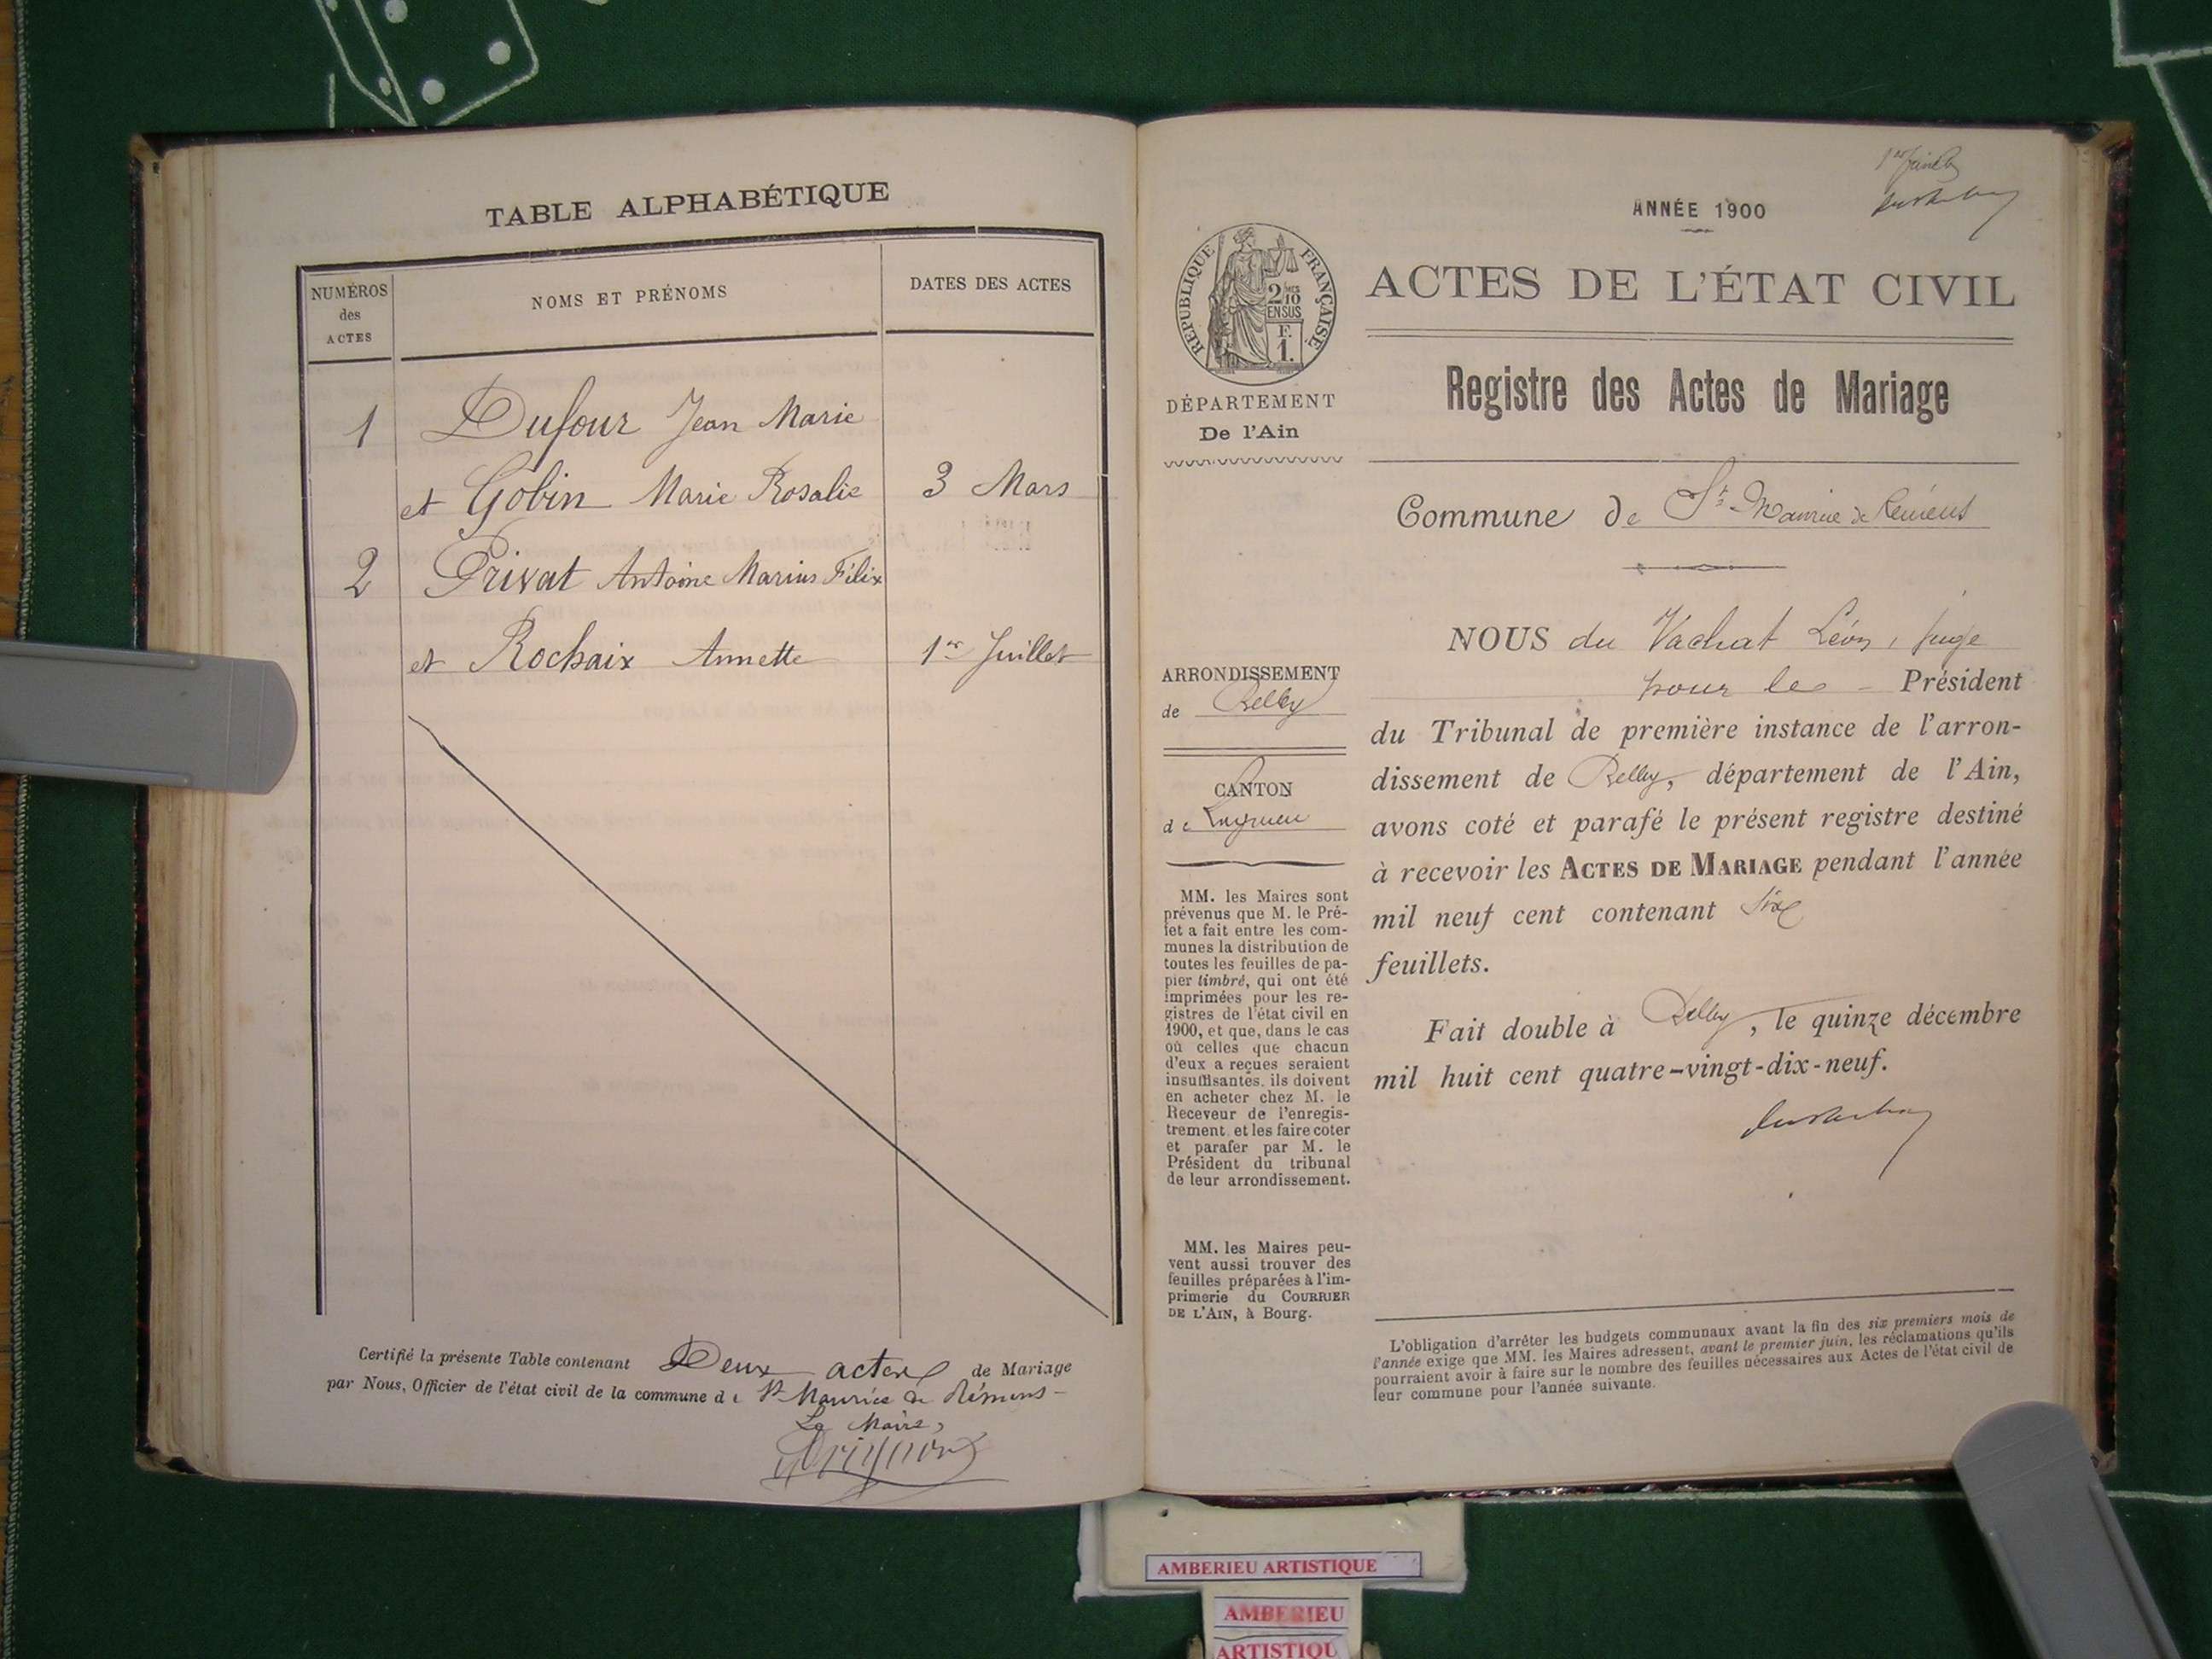 TABLE ALPHABÉTIQUE
NUMÉROS
des
ACTES
NOMS ET PRÉNOMS
DATES DES ACTES
1 Dufour Jean Marie
et Gobin Marie Rosalie 3 Mars
2 Privat Antoine Marius Félix
et Rochaix Annette 1er Juillet
Certifié la présente Table contenant Deux actes de Mariage
par Nous, Officier de l'état civil de la commune de St Maurice de Rémens
Le Maire,
ANNÉE 1900
RÉPUBLIQUE FRANÇAISE
2/10 MES
EN SUS
F.
1.
DÉPARTEMENT
De l'Ain
ARRONDISSEMENT
de Belley
CANTON
de Lagnieu
MM. les Maires sont
prévenus que M. le Pré-
fet a fait entre les com-
munes la distribution de
toutes les feuilles de pa-
pier timbré, qui ont été
imprimées pour les re-
gistres de l'état civil en
1900, et que, dans le cas
où celles que chacun
d'eux a reçues seraient
insuffisantes, ils doivent
en acheter chez M. le
Receveur de l'enregis-
trement et les faire coter
et parafer par M. le
Président du tribunal
de leur arrondissement.
MM. les Maires peu-
vent aussi trouver des
feuilles préparées à l'im-
primerie du COURRIER
DE L'AIN, à Bourg.
ACTES DE L'ÉTAT CIVIL
Registre des Actes de Mariage
Commune de St Maurice de Rémens
NOUS du Vachat Léon, juge
pour le Président
du Tribunal de première instance de l'arron-
dissement de Belley, département de l'Ain,
avons coté et parafé le présent registre destiné
à recevoir les ACTES DE MARIAGE pendant l'année
mil neuf cent contenant six
feuillets.
Fait double à Belley, le quinze décembre
mil huit cent quatre-vingt-dix-neuf.
L'obligation d'arrêter les budgets communaux avant la fin des six premiers mois de
l'année exige que MM. les Maires adressent, avant le premier juin, les réclamations qu'ils
pourraient avoir à faire sur le nombre des feuilles nécessaires aux Actes de l'état civil de
leur commune pour l'année suivante.
AMBERIEU ARTISTIQUE
AMBERIEU
ARTISTIQU